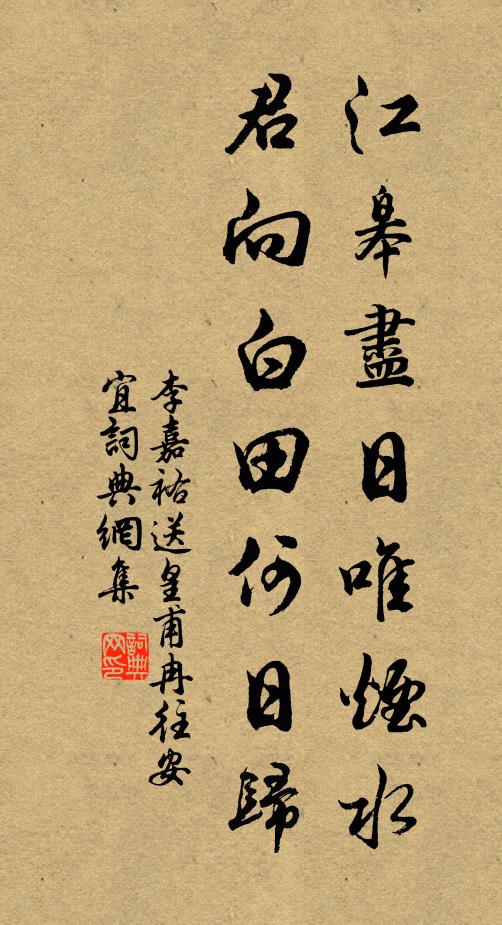 江皋盡日唯煙水
君向白田何日歸
李嘉祐送皇甫冉往安
宜詞典網集
詞典网印